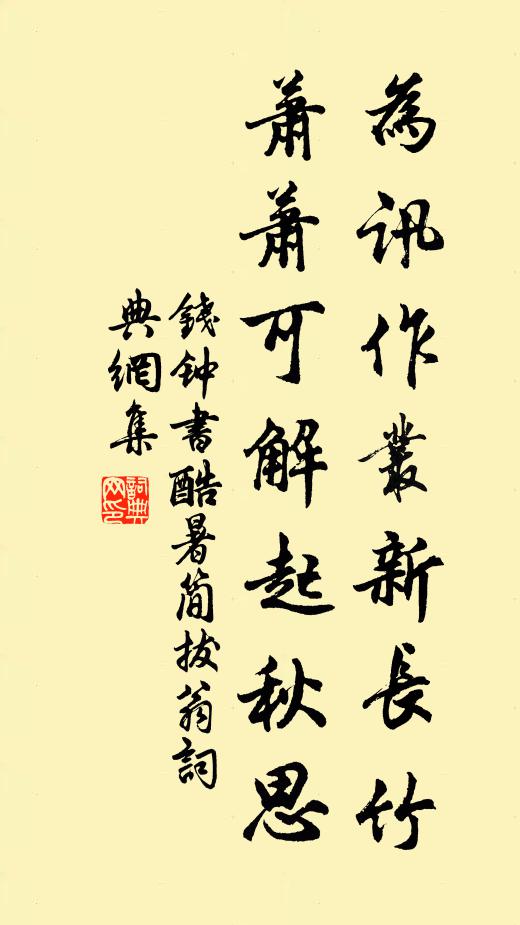 為訊作叢新長竹
蕭蕭可解起秋思
錢钟書酷暑简拔翁詞
典網集
詞典网印